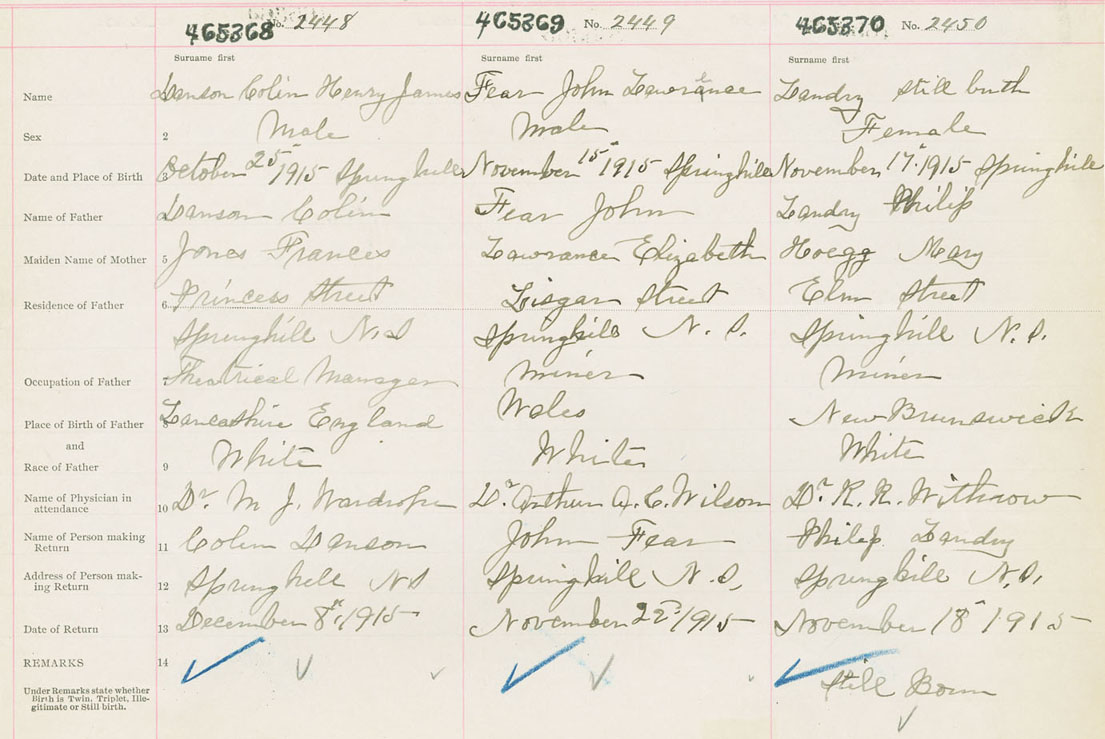 465368 No. 2448 465369 No. 2449 465370 No. 2450
Surname first Surname first Surname first
Name Danson Colin Henry James Fear John Lawrance Landry still buth
Sex 2 Male Male Female
Date and Place of Birth 3 October 25" 1915 Springhill November 15" 1915 Springhill November 17" 1915 Springhill
Name of Father Danson Colin Fear John Landry Philip
Maiden Name of Mother 5 Jones Frances Lawrance Elizabeth Hoegg Mary
Residence of Father 6 Princess Street Lisgar Street Elm Street
Springhill N.S Springhill N. S. Springhill N. S.
Occupation of Father Theatrical Manager miner miner
Place of Birth of Father 8 Lancashire England Wales New Brunswick
and
Race of Father 9 White White White
Name of Physician in
attendance 10 Dr M J. Wardrope Dr Arthur A. C. Wilson Dr. R. R. Withrow
Name of Person making
Return 11 Colin Danson John Fear Philip Landry
Address of Person mak-
ing Return 12 Springhill NS Springhill N. S. Springhill N. S.
Date of Return 13 December 8th 1915 November 22" 1915 November 18" 1915
REMARKS 14
Under Remarks state whether
Birth is Twin, Triplet, Ille-
gitimate or Still birth.
Still Born